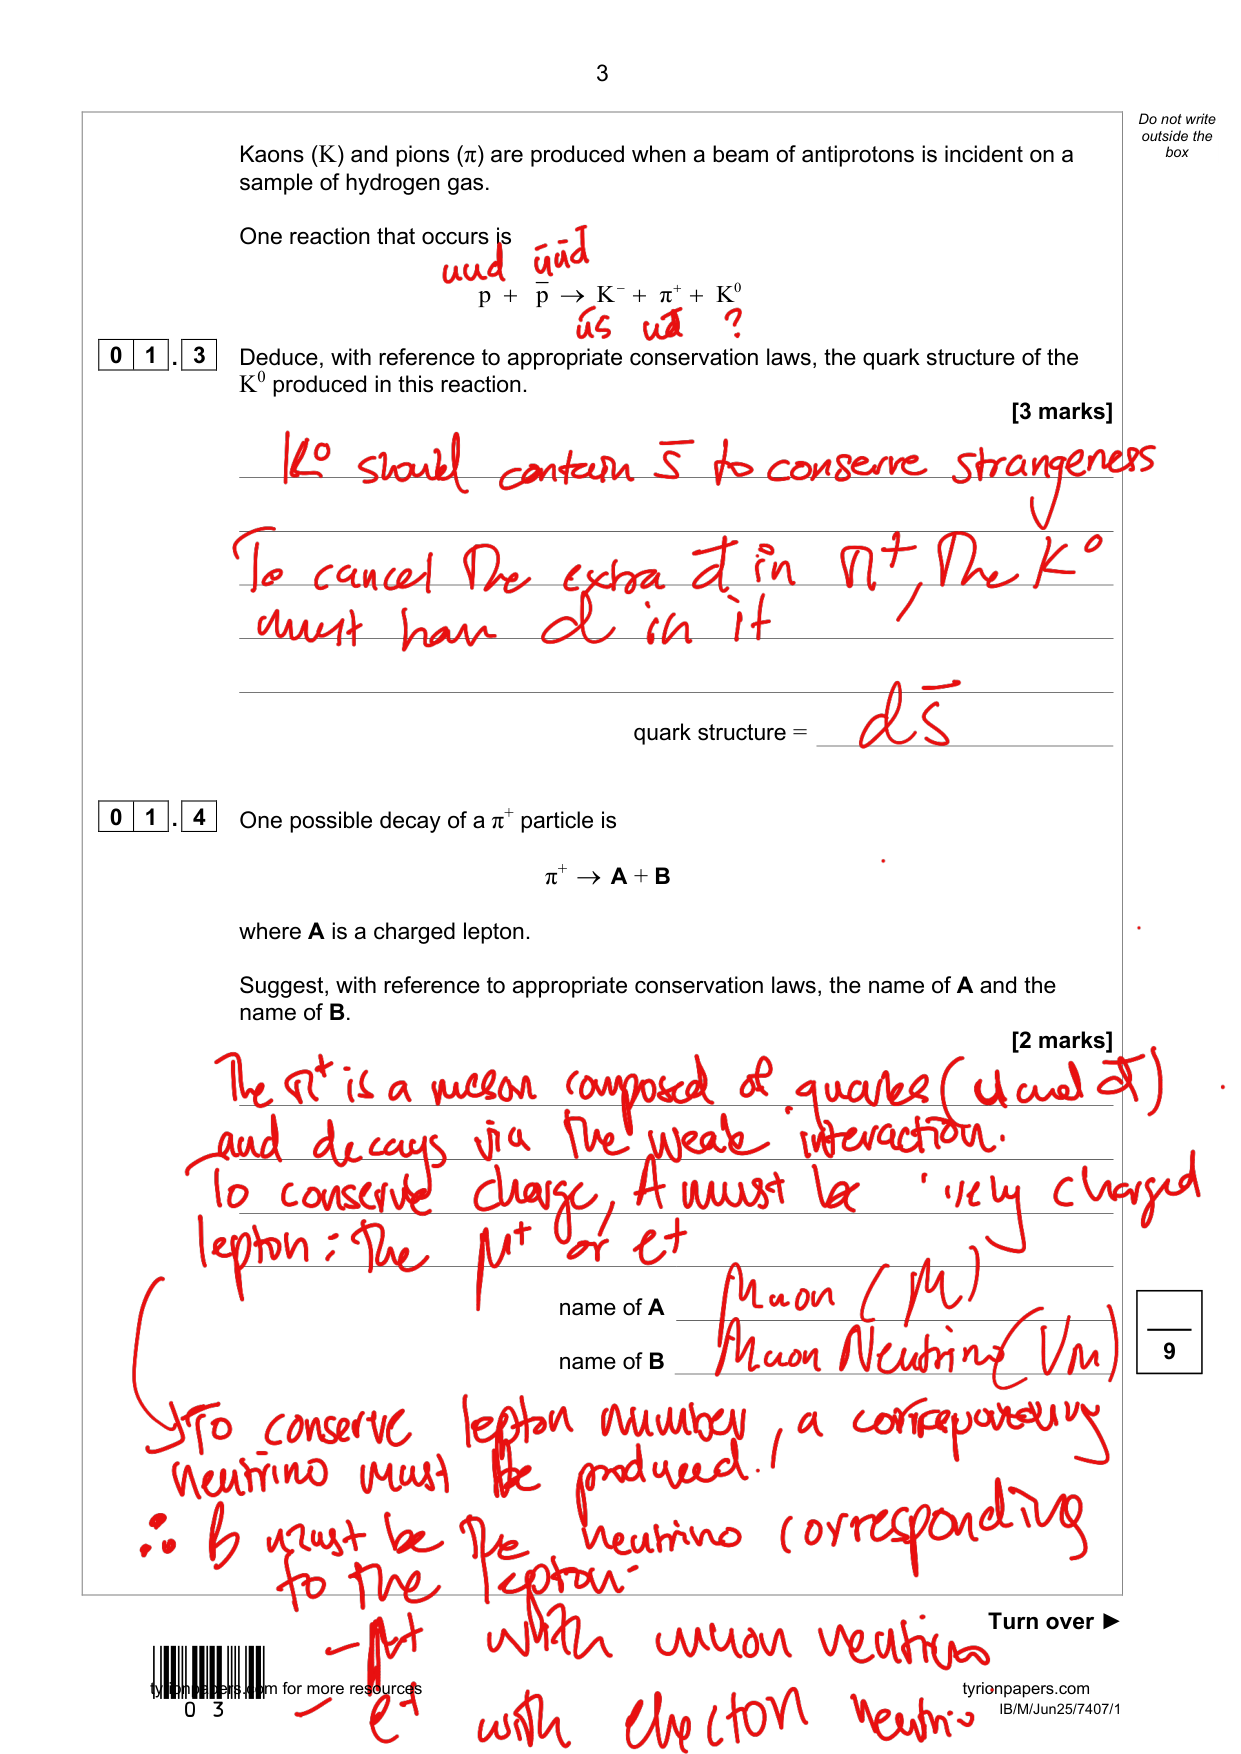 3
Do not write
outside the
box
Kaons (K) and pions (π) are produced when a beam of antiprotons is incident on a
sample of hydrogen gas.
One reaction that occurs is
uud ūūd̄
p + p̄ → K⁻ + π⁺ + K⁰
ūs ud̄ ?
0 1 . 3 Deduce, with reference to appropriate conservation laws, the quark structure of the
K⁰ produced in this reaction.
[3 marks]
K⁰ should contain s̄ to conserve strangeness
To cancel the extra d̄ in π⁺, the K⁰
must have d in it
quark structure = ds̄
0 1 . 4 One possible decay of a π⁺ particle is
π⁺ → A + B
where A is a charged lepton.
Suggest, with reference to appropriate conservation laws, the name of A and the
name of B.
[2 marks]
The π⁺ is a meson composed of quarks (u and d̄)
and decays via the weak interaction.
To conserve charge, A must be charged
lepton: the μ⁺ or e⁺
name of A Muon (μ)
name of B Muon Neutrino (νμ)
9
To conserve lepton number, a
neutrino must be produced.
∴ B must be the neutrino corresponding
to the lepton.
Turn over ►
- μ⁺ with muon neutrino
tyrionpapers.com for more resources
tyrionpapers.com
0 3
IB/M/Jun25/7407/1
- e⁺ with electon neutrino